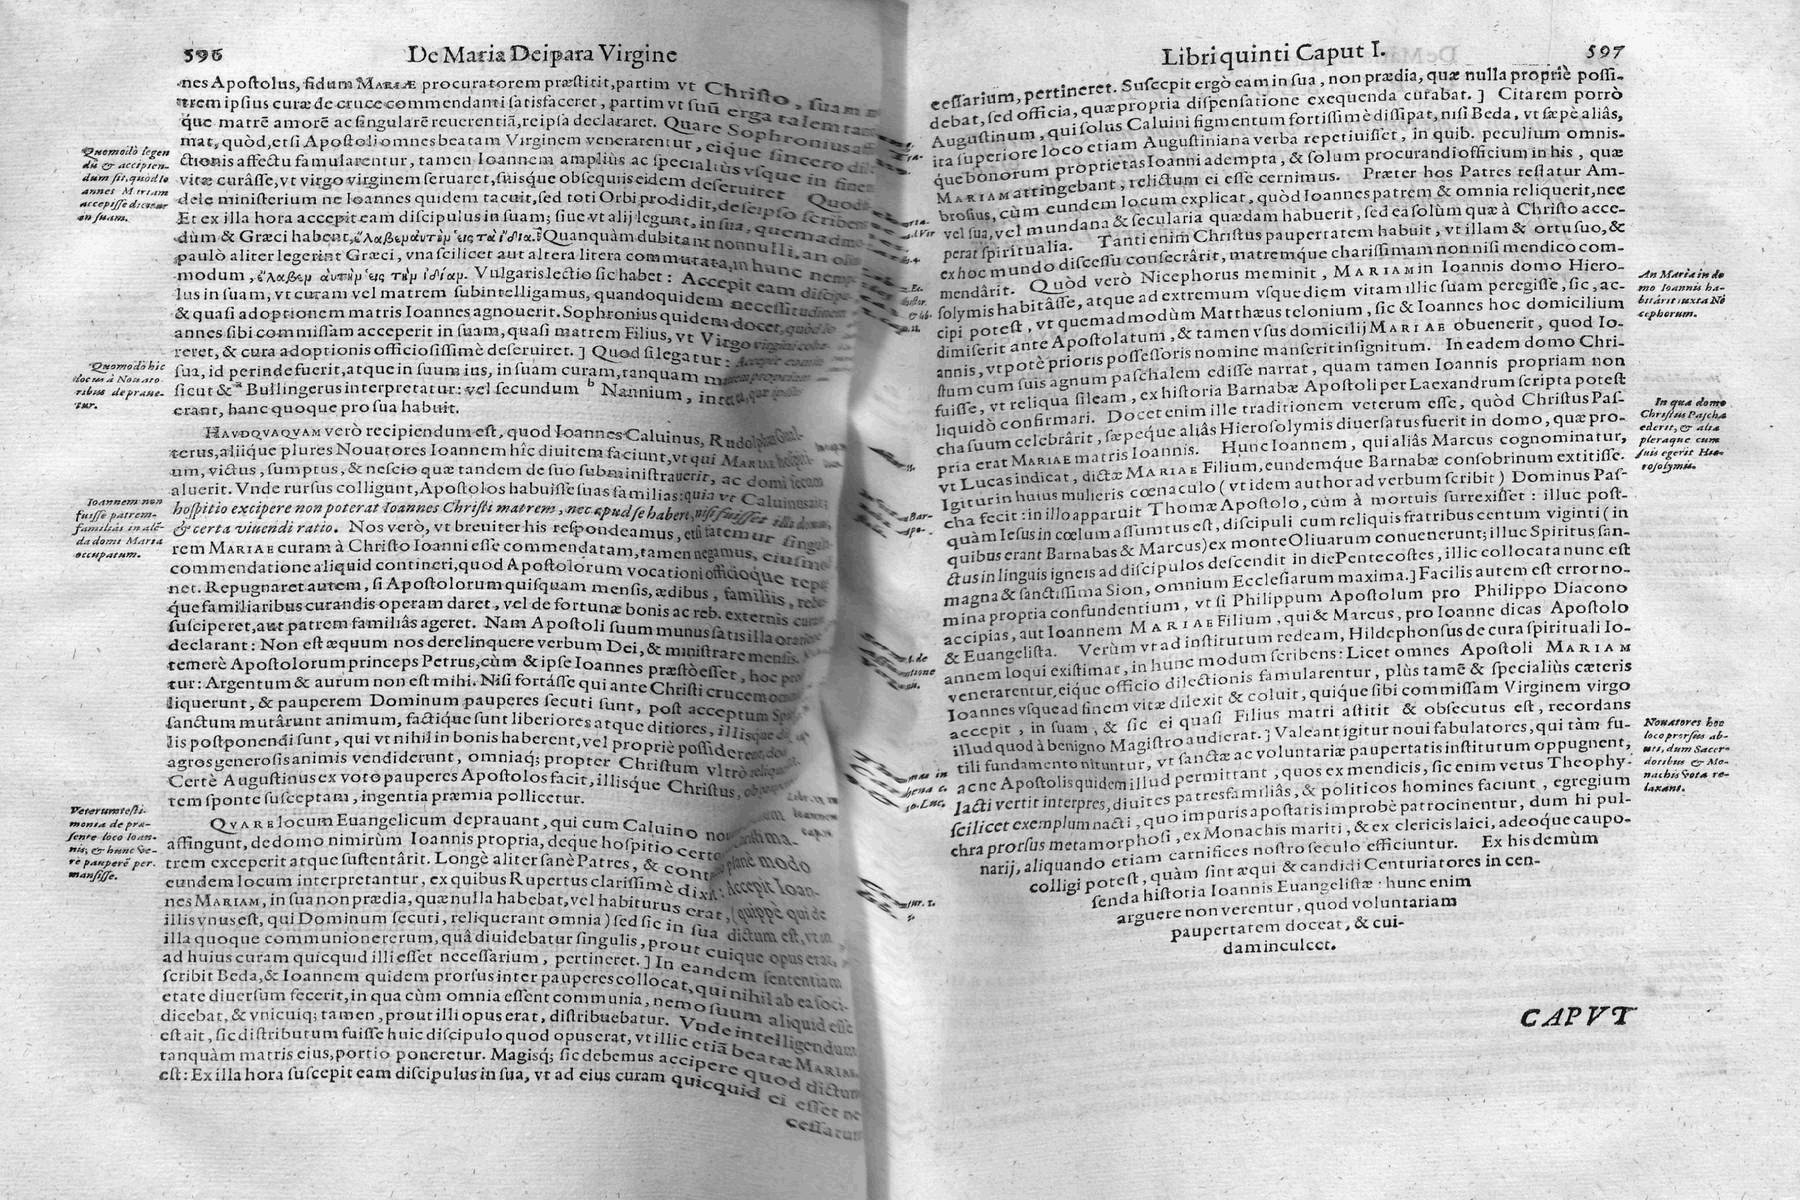 596
De Maria Deipara Virgine
nes Apostolus, fidum MARIÆ procuratorem præstitit, partim vt Christo, suam
trem ipsius curæ de cruce commendanti satisfaceret, partim vt suũ erga talem tan
que matrẽ amorẽ ac singularẽ reuerentiã, reipsa declararet. Quare Sophronius
mat, quòd, etsi Apostoli omnes beatam Virginem venerarentur, eique sincero
ctionis affectu famularentur, tamen Ioannem ampliùs ac specialiùs vsque in finem
vitæ curâsse, vt virgo virginem seruaret, suisque obsequiis eidem deseruiret
dele ministerium ne Ioannes quidem tacuit, sed toti Orbi prodidit, de seipso scribens
Et ex illa hora accepit eam discipulus in suam; siue vt alij legunt, in sua, quemadmo
dùm & Græci habent, ἔλαβεν αὐτὴν εἰς τὰ ἴδια. Quanquàm dubitant nonnulli, an
paulò aliter legerint Græci, vna scilicet aut altera litera commutata, in hunc nemp
modum, ἔλαβεν αὐτὴν εἰς τὴν ἰδίαν. Vulgaris lectio sic habet: Accepit eam discipu
lus in suam, vt curam vel matrem subintelligamus, quandoquidem necessitudinem
& quasi adoptionem matris Ioannes agnouerit. Sophronius quidem docet, quòd Io
annes sibi commissam acceperit in suam, quasi matrem Filius, vt Virgo virgini
reret, & cura adoptionis officiosissimè deseruiret.] Quod si legatur: Accepit
sua, id perinde fuerit, atque in suum ius, in suam curam, tanquam matrem propriam
sicut & a Bullingerus interpretatur: vel secundum b Nannium, inter
erant, hanc quoque pro sua habuit.
HAVDQVAQVAM verò recipiendum est, quod Ioannes Caluinus, Rudolphus Gual-
terus, aliique plures Nouatores Ioannem hîc diuitem faciunt, vt qui MARIAE hospiti-
um, victus, sumptus, & nescio quæ tandem de suo subministrauerit, ac domi secum
aluerit. Vnde rursus colligunt, Apostolos habuisse suas familias: quia vt Caluinus ait
hospitio excipere non poterat Ioannes Christi matrem, nec apud se habere, nisi fuisset illi domus,
& certa viuendi ratio. Nos verò, vt breuiter his respondeamus, etsi fatemur singula
rem MARIAE curam à Christo Ioanni esse commendatam, tamen negamus, eiusmodi
commendatione aliquid contineri, quod Apostolorum vocationi officioque repu
net. Repugnaret autem, si Apostolorum quisquam mensis, ædibus, familiis, rebus
que familiaribus curandis operam daret, vel de fortunæ bonis ac reb. externis curam
susciperet, aut patrem familiâs ageret. Nam Apostoli suum munus satis illa oratione
declarant: Non est æquum nos derelinquere verbum Dei, & ministrare mensis.
temerè Apostolorum princeps Petrus, cùm & ipse Ioannes præstò esset, hoc
tur: Argentum & aurum non est mihi. Nisi fortâsse qui ante Christi crucem omnia
liquerunt, & pauperem Dominum pauperes secuti sunt, post acceptum
sanctum mutârunt animum, factique sunt liberiores atque ditiores, illisque
lis postponendi sunt, qui vt nihil in bonis haberent, vel propriè possiderent,
agros generosis animis vendiderunt, omniaq; propter Christum vltrò
Certè Augustinus ex voto pauperes Apostolos facit, illisque Christus,
tem sponte susceptam, ingentia præmia pollicetur.
QVARE locum Euangelicum deprauant, qui cum Caluino
affingunt, de domo nimirùm Ioannis propria, deque hospitio certo
trem exceperit atque sustentârit. Longè aliter sanè Patres, & planè modo
eundem locum interpretantur, ex quibus Rupertus clarissimè dixit: Accepit Ioan-
nes MARIAM, in sua non prædia, quæ nulla habebat, vel habiturus erat, (quippè qui de
illis vnus est, qui Dominum secuti, reliquerant omnia) sed sic in sua dictum est, vt in
illa quoque communione rerum, quâ diuidebatur singulis, prout cuique opus erat,
ad huius curam quicquid illi esset necessarium, pertineret.] In eandem sententiam
scribit Beda, & Ioannem quidem prorsus inter pauperes collocat, qui nihil ab ea soci-
etate diuersum fecerit, in qua cùm omnia essent communia, nemo suum aliquid esse
dicebat, & vnicuiq; tamen, prout illi opus erat, distribuebatur. Vnde intelligendum
est ait, sic distributum fuisse huic discipulo quod opus erat, vt illic etiã beatæ MARIAE,
tanquàm matris eius, portio poneretur. Magisq; sic debemus accipere quod dictum
est: Ex illa hora suscepit eam discipulus in sua, vt ad eius curam quicquid ei esset ne
cessarium
Quomodò legen
dũ & accipien-
dum sit, quòd Io
annes Mariam
accepisse dicatur
in suam.
Quomodò hic
locus à Nouato-
ribus depraue-
tur.
Ioannem non
fuisse patrem-
familiâs in alẽ-
da domi Maria
occupatum.
Veterum testi-
monia de præ-
sente loco Ioan-
nis, & hunc ve-
rè pauperẽ per-
mansisse.
Libri quinti Caput I.
597
cessarium, pertineret. Suscepit ergò eam in sua, non prædia, quæ nulla propriè possi-
debat, sed officia, quæ propria dispensatione exequenda curabat.] Citarem porrò
Augustinum, qui solus Caluini figmentum fortissimè dissipat, nisi Beda, vt sæpè aliâs,
ita superiore loco etiam Augustiniana verba repetiuisset, in quib. peculium omnis-
que bonorum proprietas Ioanni adempta, & solum procurandi officium in his, quæ
MARIAM attingebant, relictum ei esse cernimus. Præter hos Patres testatur Am-
brosius, cùm eundem locum explicat, quòd Ioannes patrem & omnia reliquerit, nec
vel sua, vel mundana & secularia quædam habuerit, sed ea solùm quæ à Christo acce-
perat spiritualia. Tanti enim Christus paupertatem habuit, vt illam & ortu suo, &
ex hoc mundo discessu consecrârit, matremque charissimam non nisi mendico com-
mendârit. Quòd verò Nicephorus meminit, MARIAM in Ioannis domo Hiero-
solymis habitâsse, atque ad extremum vsque diem vitam illic suam peregisse, sic, ac-
cipi potest, vt quemadmodùm Matthæus telonium, sic & Ioannes hoc domicilium
dimiserit ante Apostolatum, & tamen vsus domicilij MARIAE obuenerit, quod Io-
annis, vt potè prioris possessoris nomine manserit insignitum. In eadem domo Chri-
stum cum suis agnum paschalem edisse narrat, quam tamen Ioannis propriam non
fuisse, vt reliqua sileam, ex historia Barnabæ Apostoli per Laexandrum scripta potest
liquidò confirmari. Docet enim ille traditionem veterum esse, quòd Christus Pas-
cha suum celebrârit, sæpeque aliâs Hierosolymis diuersatus fuerit in domo, quæ pro-
pria erat MARIAE matris Ioannis. Hunc Ioannem, qui aliâs Marcus cognominatur,
vt Lucas indicat, dictæ MARIAE Filium, eundemque Barnabæ consobrinum extitisse.
Igitur in huius mulieris cœnaculo (vt idem author ad verbum scribit) Dominus Pas-
cha fecit: in illo apparuit Thomæ Apostolo, cùm à mortuis surrexisset: illuc post-
quàm Iesus in cœlum assumtus est, discipuli cum reliquis fratribus centum viginti (in
quibus erant Barnabas & Marcus) ex monte Oliuarum conuenerunt; illuc Spiritus san-
ctus in linguis igneis ad discipulos descendit in die Pentecostes, illic collocata nunc est
magna & sanctissima Sion, omnium Ecclesiarum maxima.] Facilis autem est error no-
mina propria confundentium, vt si Philippum Apostolum pro Philippo Diacono
accipias, aut Ioannem MARIAE Filium, qui & Marcus, pro Ioanne dicas Apostolo
& Euangelista. Verùm vt ad institutum redeam, Hildephonsus de cura spirituali Io-
annem loqui existimat, in hunc modum scribens: Licet omnes Apostoli MARIAM
venerarentur, eique officio dilectionis famularentur, plùs tamẽ & specialiùs cæteris
Ioannes vsque ad finem vitæ dilexit & coluit, quique sibi commissam Virginem virgo
accepit, in suam, & sic ei quasi Filius matri astitit & obsecutus est, recordans
illud quod à benigno Magistro audierat.] Valeant igitur noui fabulatores, qui tàm fu-
tili fundamento nituntur, vt sanctæ ac voluntariæ paupertatis institutum oppugnent,
ac ne Apostolis quidem illud permittant, quos ex mendicis, sic enim vetus Theophy-
lacti vertit interpres, diuites patresfamiliâs, & politicos homines faciunt, egregium
scilicet exemplum nacti, quo impuris apostatis improbè patrocinentur, dum hi pul-
chra prorsus metamorphosi, ex Monachis mariti, & ex clericis laici, adeoque caupo-
narij, aliquando etiam carnifices nostro seculo efficiuntur. Ex his demùm
colligi potest, quàm sint æqui & candidi Centuriatores in cen-
senda historia Ioannis Euangelistæ: hunc enim
arguere non verentur, quod voluntariam
paupertatem doceat, & cui-
dam inculcet.
CAPVT
An Maria in do
mo Ioannis ha-
bitârit iuxta Ni
cephorum.
In qua domo
Christus Pascha
ederit, & alia
pleraque cum
suis egerit Hie-
rosolymis.
Nouatores hoc
loco prorsus ab-
uti, dum Sacer-
dotibus & Mo-
nachis vota re-
laxant.